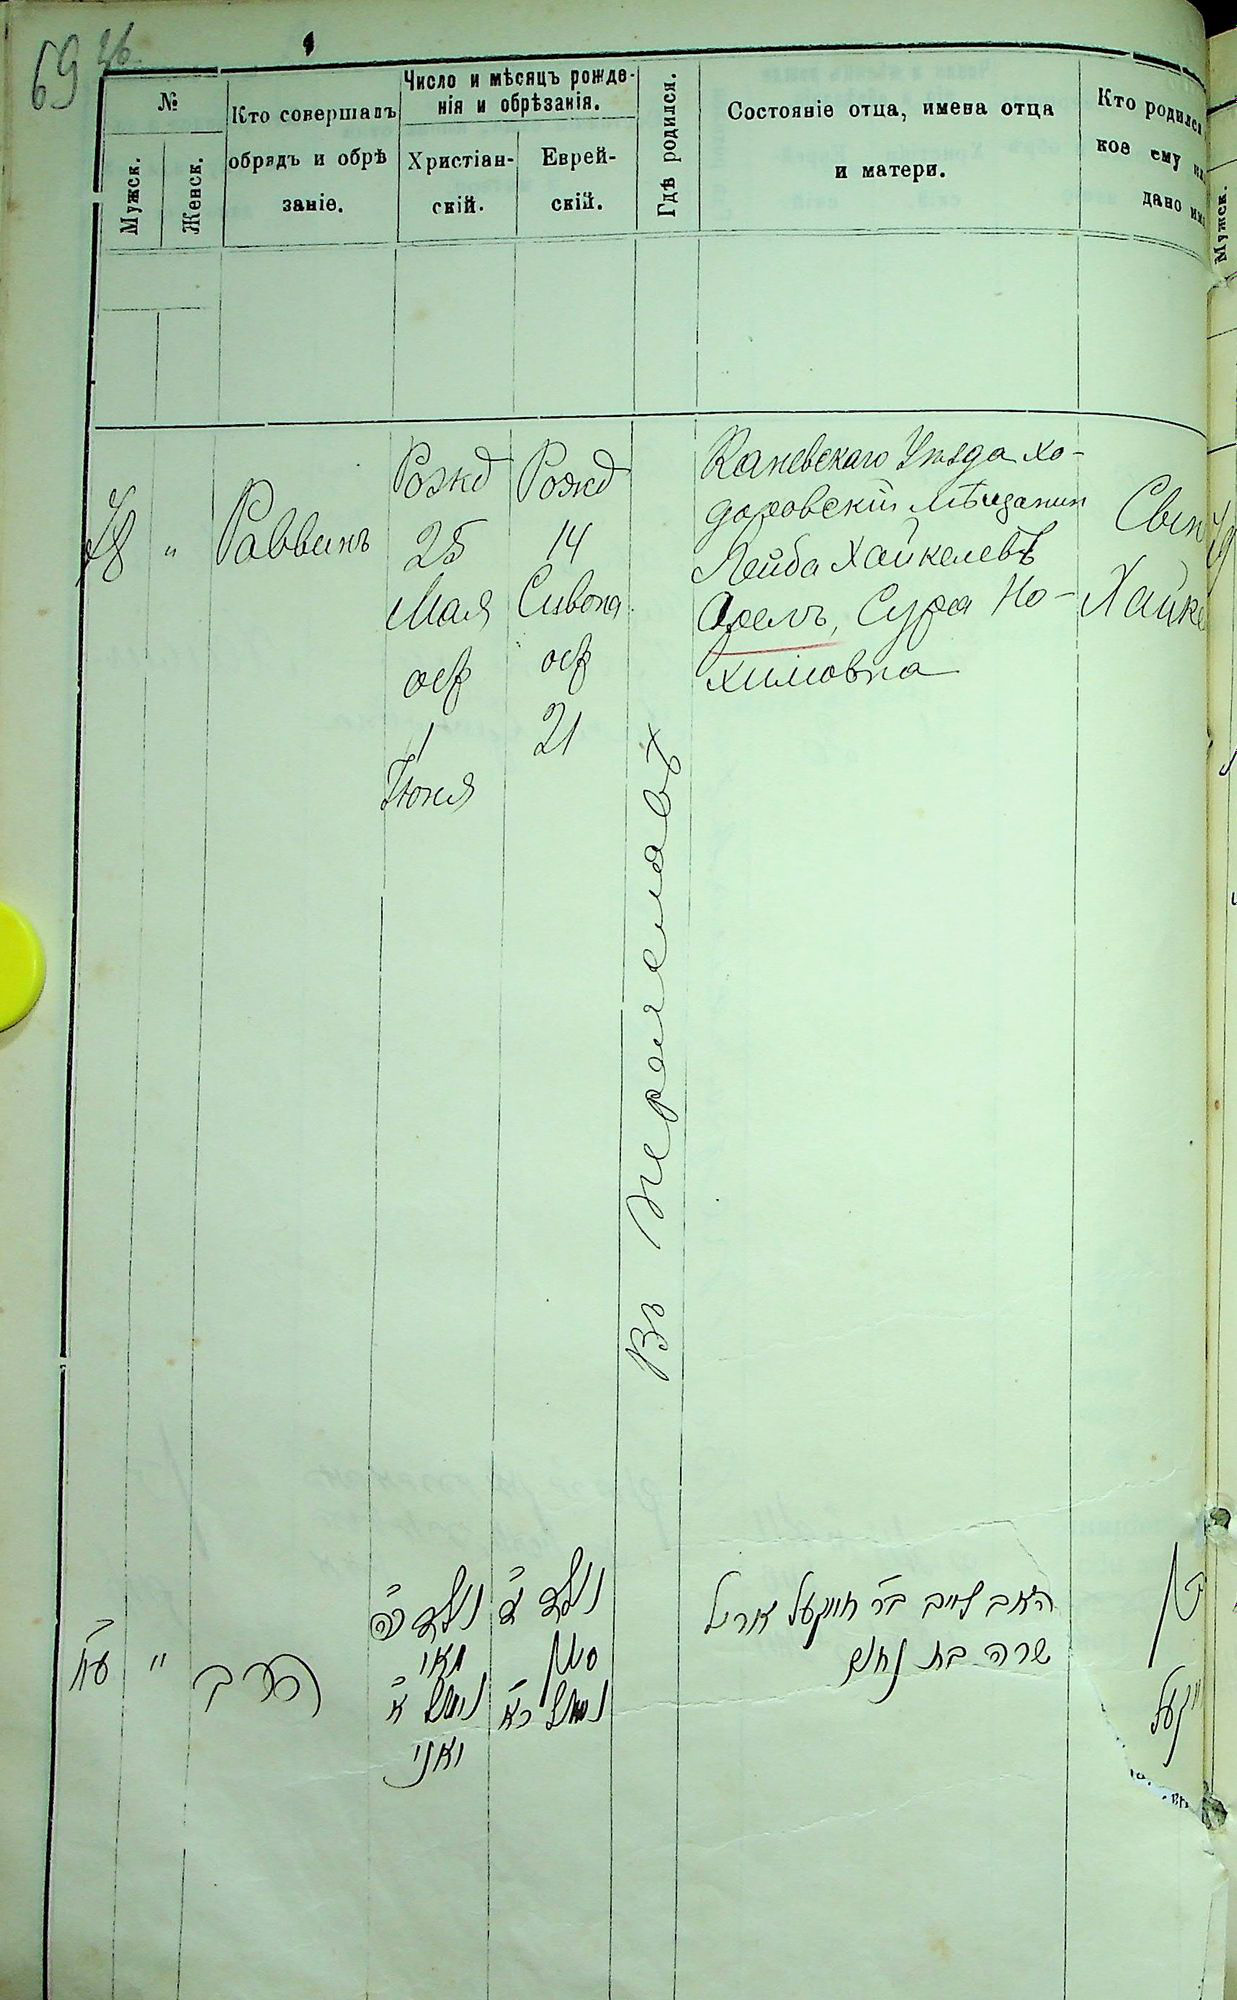 69
№
Мужск.
Женск.
Кто совершалъ
обрядъ и обрѣ
заніе.
Число и мѣсяцъ рожде-
нія и обрѣзанія.
Христіан-
скій.
Еврей-
скій.
Гдѣ родился.
Состояніе отца, имена отца
и матери.
Кто родился
кое ему
дано
Мужск.
78
"
Раввинъ
Рожд
25
Мая
обр
1
Іюня
Рожд
14
Сивона
обр
21
Въ Переяславѣ
Каневскаго Уѣзда Хо-
доровскій Мѣщанин
Лейба Хайкелевъ
Орелъ, Сура Но-
химовна
Сын
Хайке
עח
"
הרב
נולד כה
מאי
נימול א
יאני
נולד יד
סיון
נימול כא
האב לייב בר חייקל אריל
שרה בת נחום